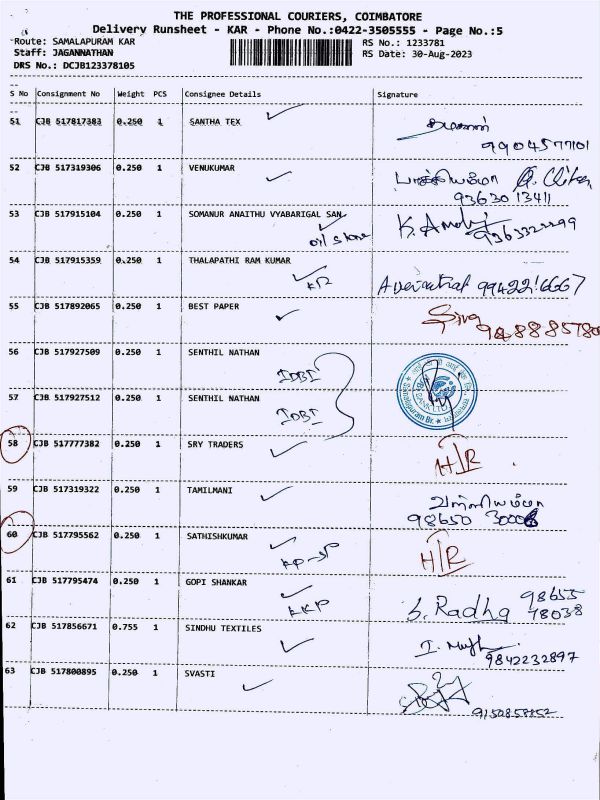 THE PROFESSIONAL COURIERS, COIMBATORE
Delivery Runsheet - KAR - Phone No.:0422-3505555 - Page No.:5
Route: SAMALAPURAM KAR RS No.: 1233781
Staff: JAGANNATHAN RS Date: 30-Aug-2023
DRS No.: DCJB123378105
S No Consignment No Weight PCS Consignee Details Signature
51 CJB 517817383 0.250 1 SANTHA TEX
9904577101
52 CJB 517319306 0.250 1 VENUKUMAR
9363013411
53 CJB 517915104 0.250 1 SOMANUR ANAITHU VYABARIGAL SAN
54 CJB 517915359 0.250 1 THALAPATHI RAM KUMAR
55 CJB 517892065 0.250 1 BEST PAPER
56 CJB 517927509 0.250 1 SENTHIL NATHAN
IDBI
57 CJB 517927512 0.250 1 SENTHIL NATHAN
IDBI
58 CJB 517777382 0.250 1 SRY TRADERS
H/R
59 CJB 517319322 0.250 1 TAMILMANI
60 CJB 517795562 0.250 1 SATHISHKUMAR
H/R
61 CJB 517795474 0.250 1 GOPI SHANKAR
KKP
S. Radha 98655
78038
62 CJB 517856671 0.755 1 SINDHU TEXTILES
9842232897
63 CJB 517800895 0.250 1 SVASTI